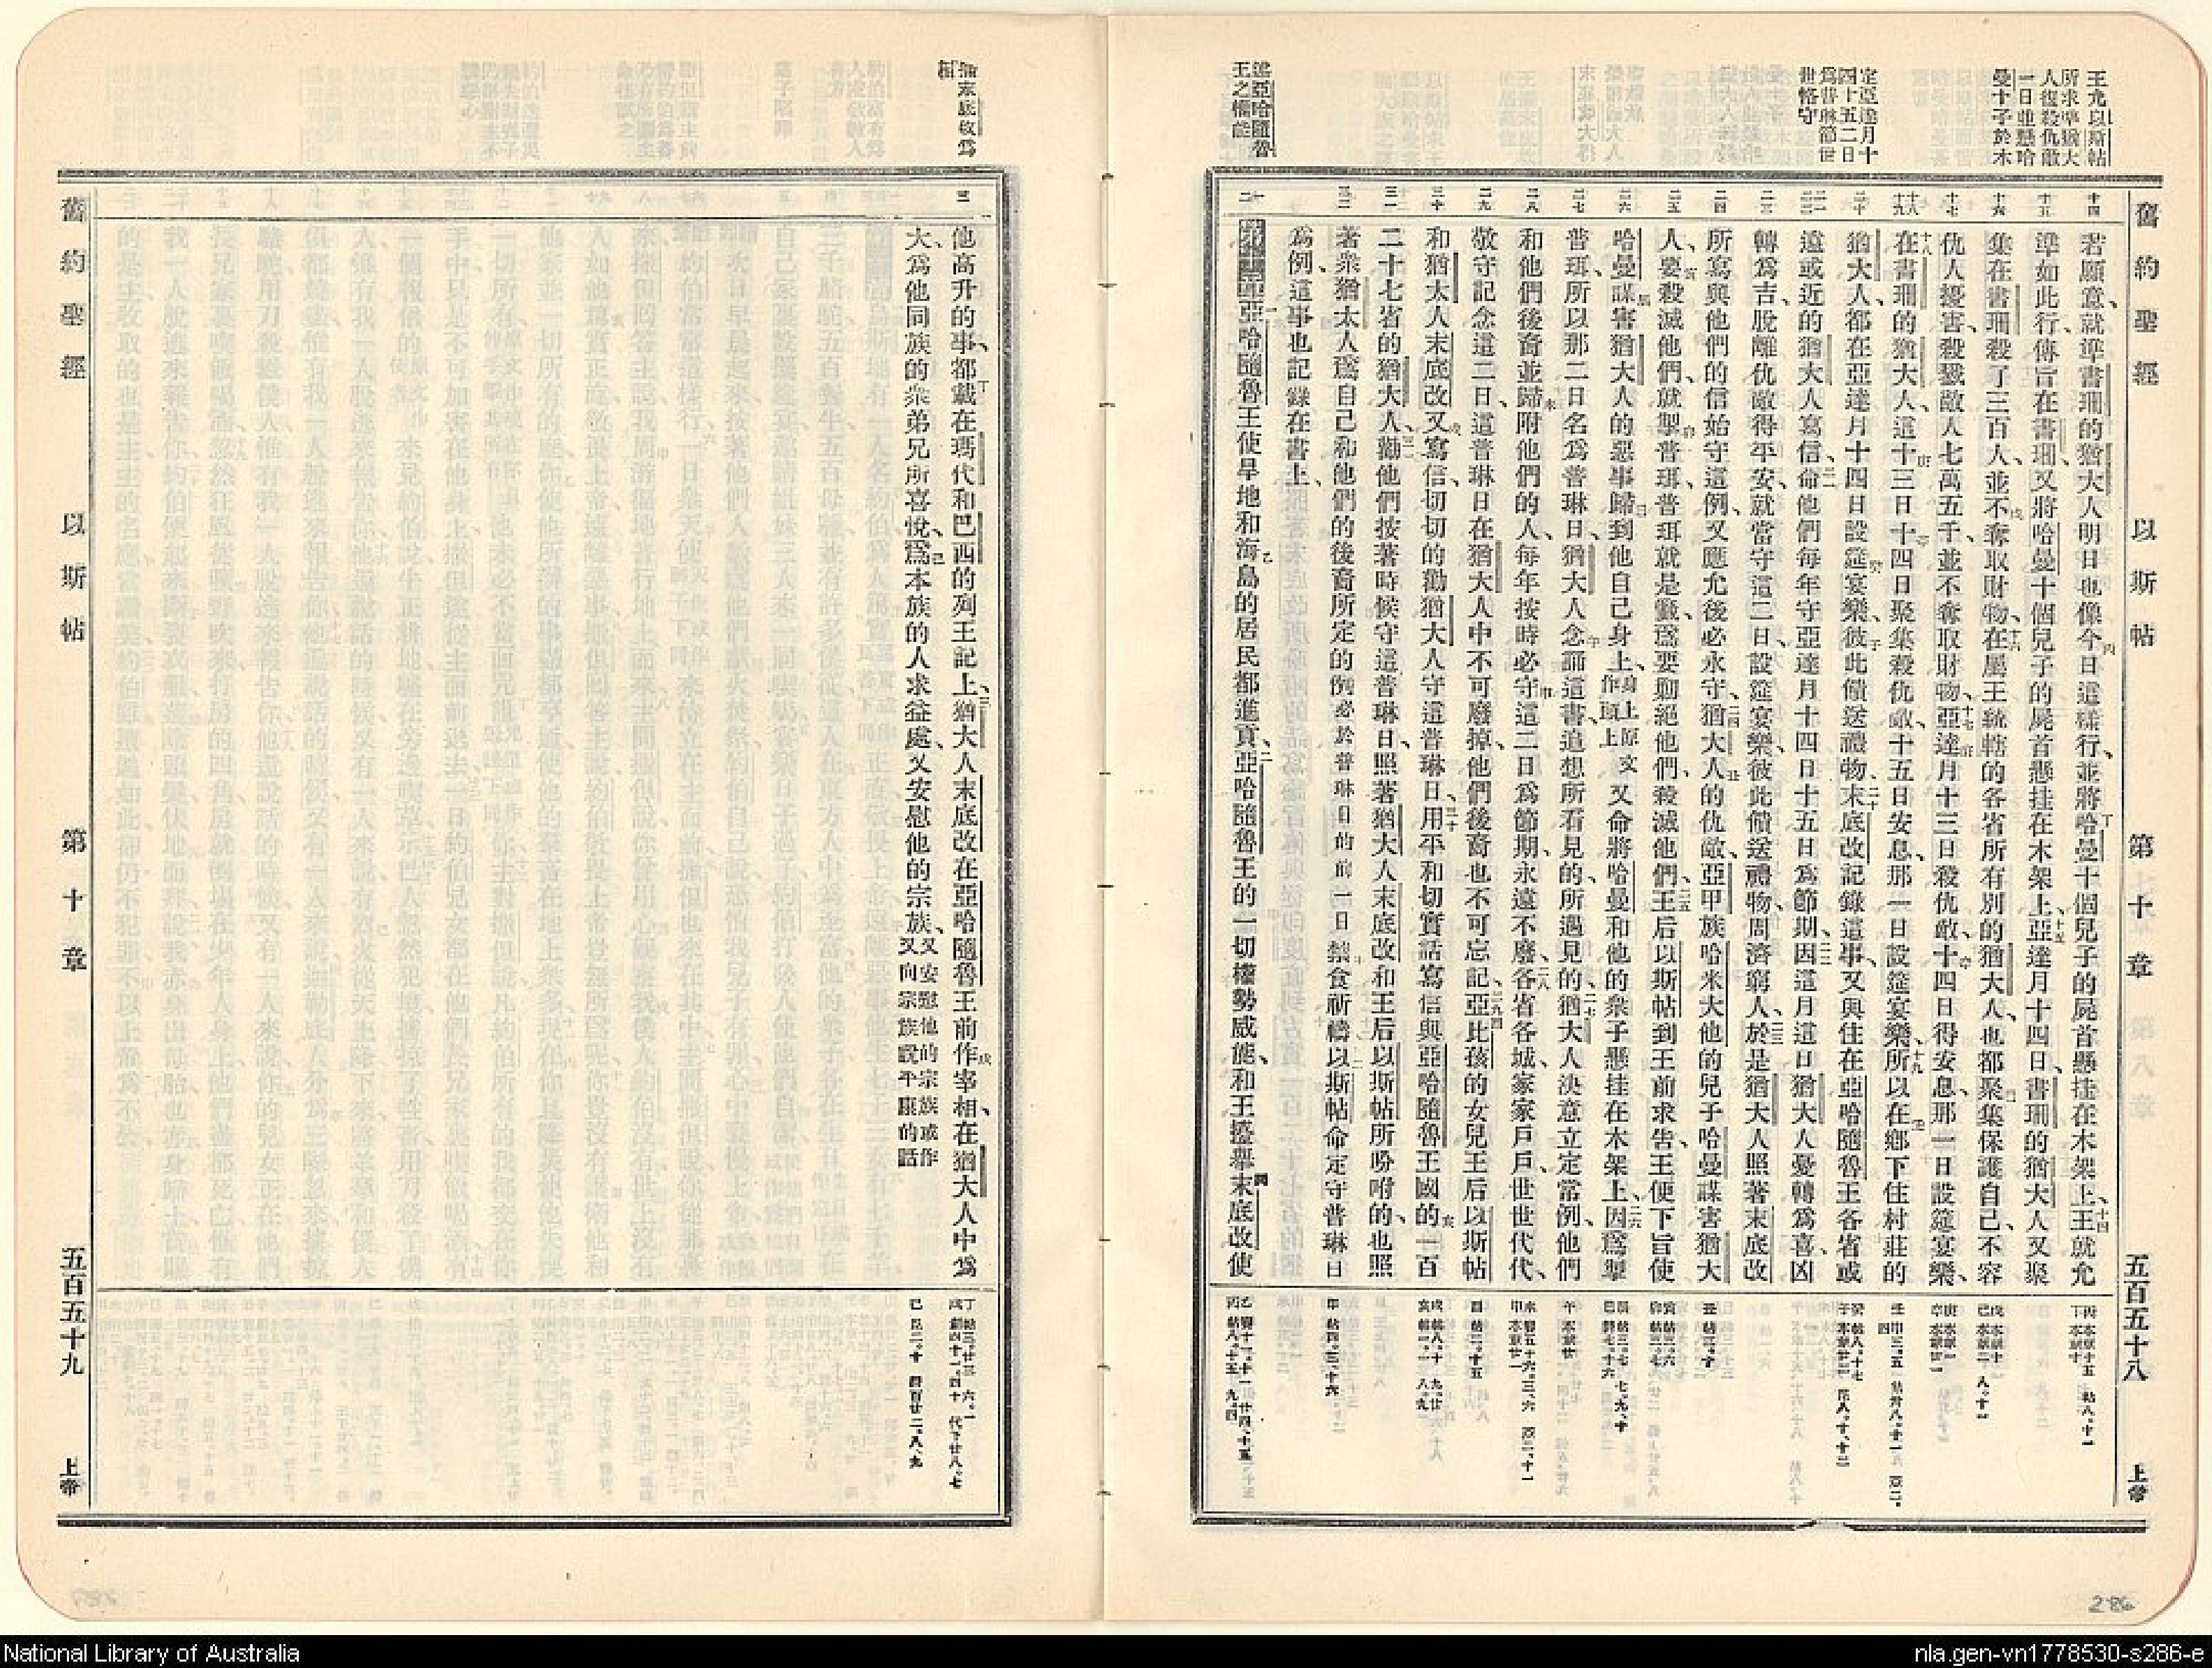 王允以斯帖
所求準猶大
人復殺仇敵
一日並懸哈
曼十子於木
定亞達月十
四十五二日
爲普琳節世
世恪守
述亞哈隨魯
王之權能
舊約聖經 以斯帖 第十章 五百五十八 上帝
十四
若願意、就準書珊的猶大人明日也像今日這樣行、並將哈曼十個兒子的屍首懸挂在木架上、十四王就允
十五
準如此行、傳旨在書珊、又將哈曼十個兒子的屍首懸挂在木架上、十五亞達月十四日、書珊的猶大人又聚
十六
集在書珊、殺了三百人、並不奪取財物、十六在屬王統轄的各省所有別的猶大人、也都聚集保護自己、不容
十七
仇人擾害、殺戮敵人七萬五千、並不奪取財物、十七亞達月十三日殺仇敵、十四日得安息、那一日設筵宴樂、
十八 十九
十八在書珊的猶大人、這十三日十四日聚集殺仇敵、十五日安息、那一日設筵宴樂、十九所以在鄉下住村莊的
二十
猶大人、都在亞達月十四日設筵宴樂、彼此餽送禮物、二十末底改記錄這事、又與住在亞哈隨魯王各省或
二一 二二
遠或近的猶大人寫信、二一命他們每年守亞達月十四日十五日爲節期、二二因這月這日猶大人憂轉爲喜、凶
二三
轉爲吉、脫離仇敵得平安、就當守這二日、設筵宴樂、彼此餽送禮物、周濟窮人、二三於是猶大人照著末底改
二四
所寫與他們的信始守這例、又應允後必永守、二四猶大人的仇敵、亞甲族哈米大他的兒子哈曼謀害猶大
二五
人、要殺滅他們、就掣普珥、普珥就是籤、爲要勦絕他們、殺滅他們、二五王后以斯帖到王前求告、王便下旨使
二六
哈曼謀害猶大人的惡事歸到他自己身上、身上原文作頭上又命將哈曼和他的衆子懸挂在木架上、二六因爲掣
二七
普珥、所以那二日名爲普琳日、猶大人念誦這書、追想所看見的所遇見的、二七猶大人決意立定常例、他們
二八
和他們後裔並歸附他們的人、每年按時必守這二日爲節期、永遠不廢、二八各省各城、家家戶戶、世世代代、
二九
敬守記念這二日、這普琳日在猶大人中不可廢掉、他們後裔也不可忘記、二九亞比孩的女兒王后以斯帖
三十
和猶太人末底改又寫信、切切的勸猶大人守這普琳日、三十用平和切實話寫信與亞哈隨魯王國的一百
三一
二十七省的猶大人、三一勸他們按著時候守這普琳日、照著猶大人末底改和王后以斯帖所吩咐的、也照
三二
著衆猶太人爲自己和他們的後裔所定的例、必於普琳日的前一日禁食祈禱、以斯帖命定守普琳日
爲例、這事也記錄在書上、
一 二
第十章 一亞哈隨魯王使旱地和海島的居民都進貢、二亞哈隨魯王的一切權勢威能、和王擡舉末底改使
丙 本章十五 帖八。十一
丁 本章十
戊 本章十
己 本章二 八。十一
庚 本章一
辛 本章廿一
癸 帖八。十七
子 本章廿二
丑 帖三。十
午 本章廿
酉 帖二。十五
甲 帖四。三、十六
末底改爲
相
三
他高升的事、都載在瑪代和巴西的列王記上、三猶大人末底改在亞哈隨魯王前作宰相、在猶大人中爲
大、爲他同族的衆弟兄所喜悅、爲本族的人求益處、又安慰他的宗族、又安慰他的宗族或作又向宗族說平康的話
丁 帖三。廿三 六。一
戊 創四十一。四十 代下廿八。七
己 尼二。十 詩百廿二。八、九
舊約聖經 以斯帖 第十章 五百五十九 上帝
286
National Library of Australia
nla.gen-vn1778530-s286-e